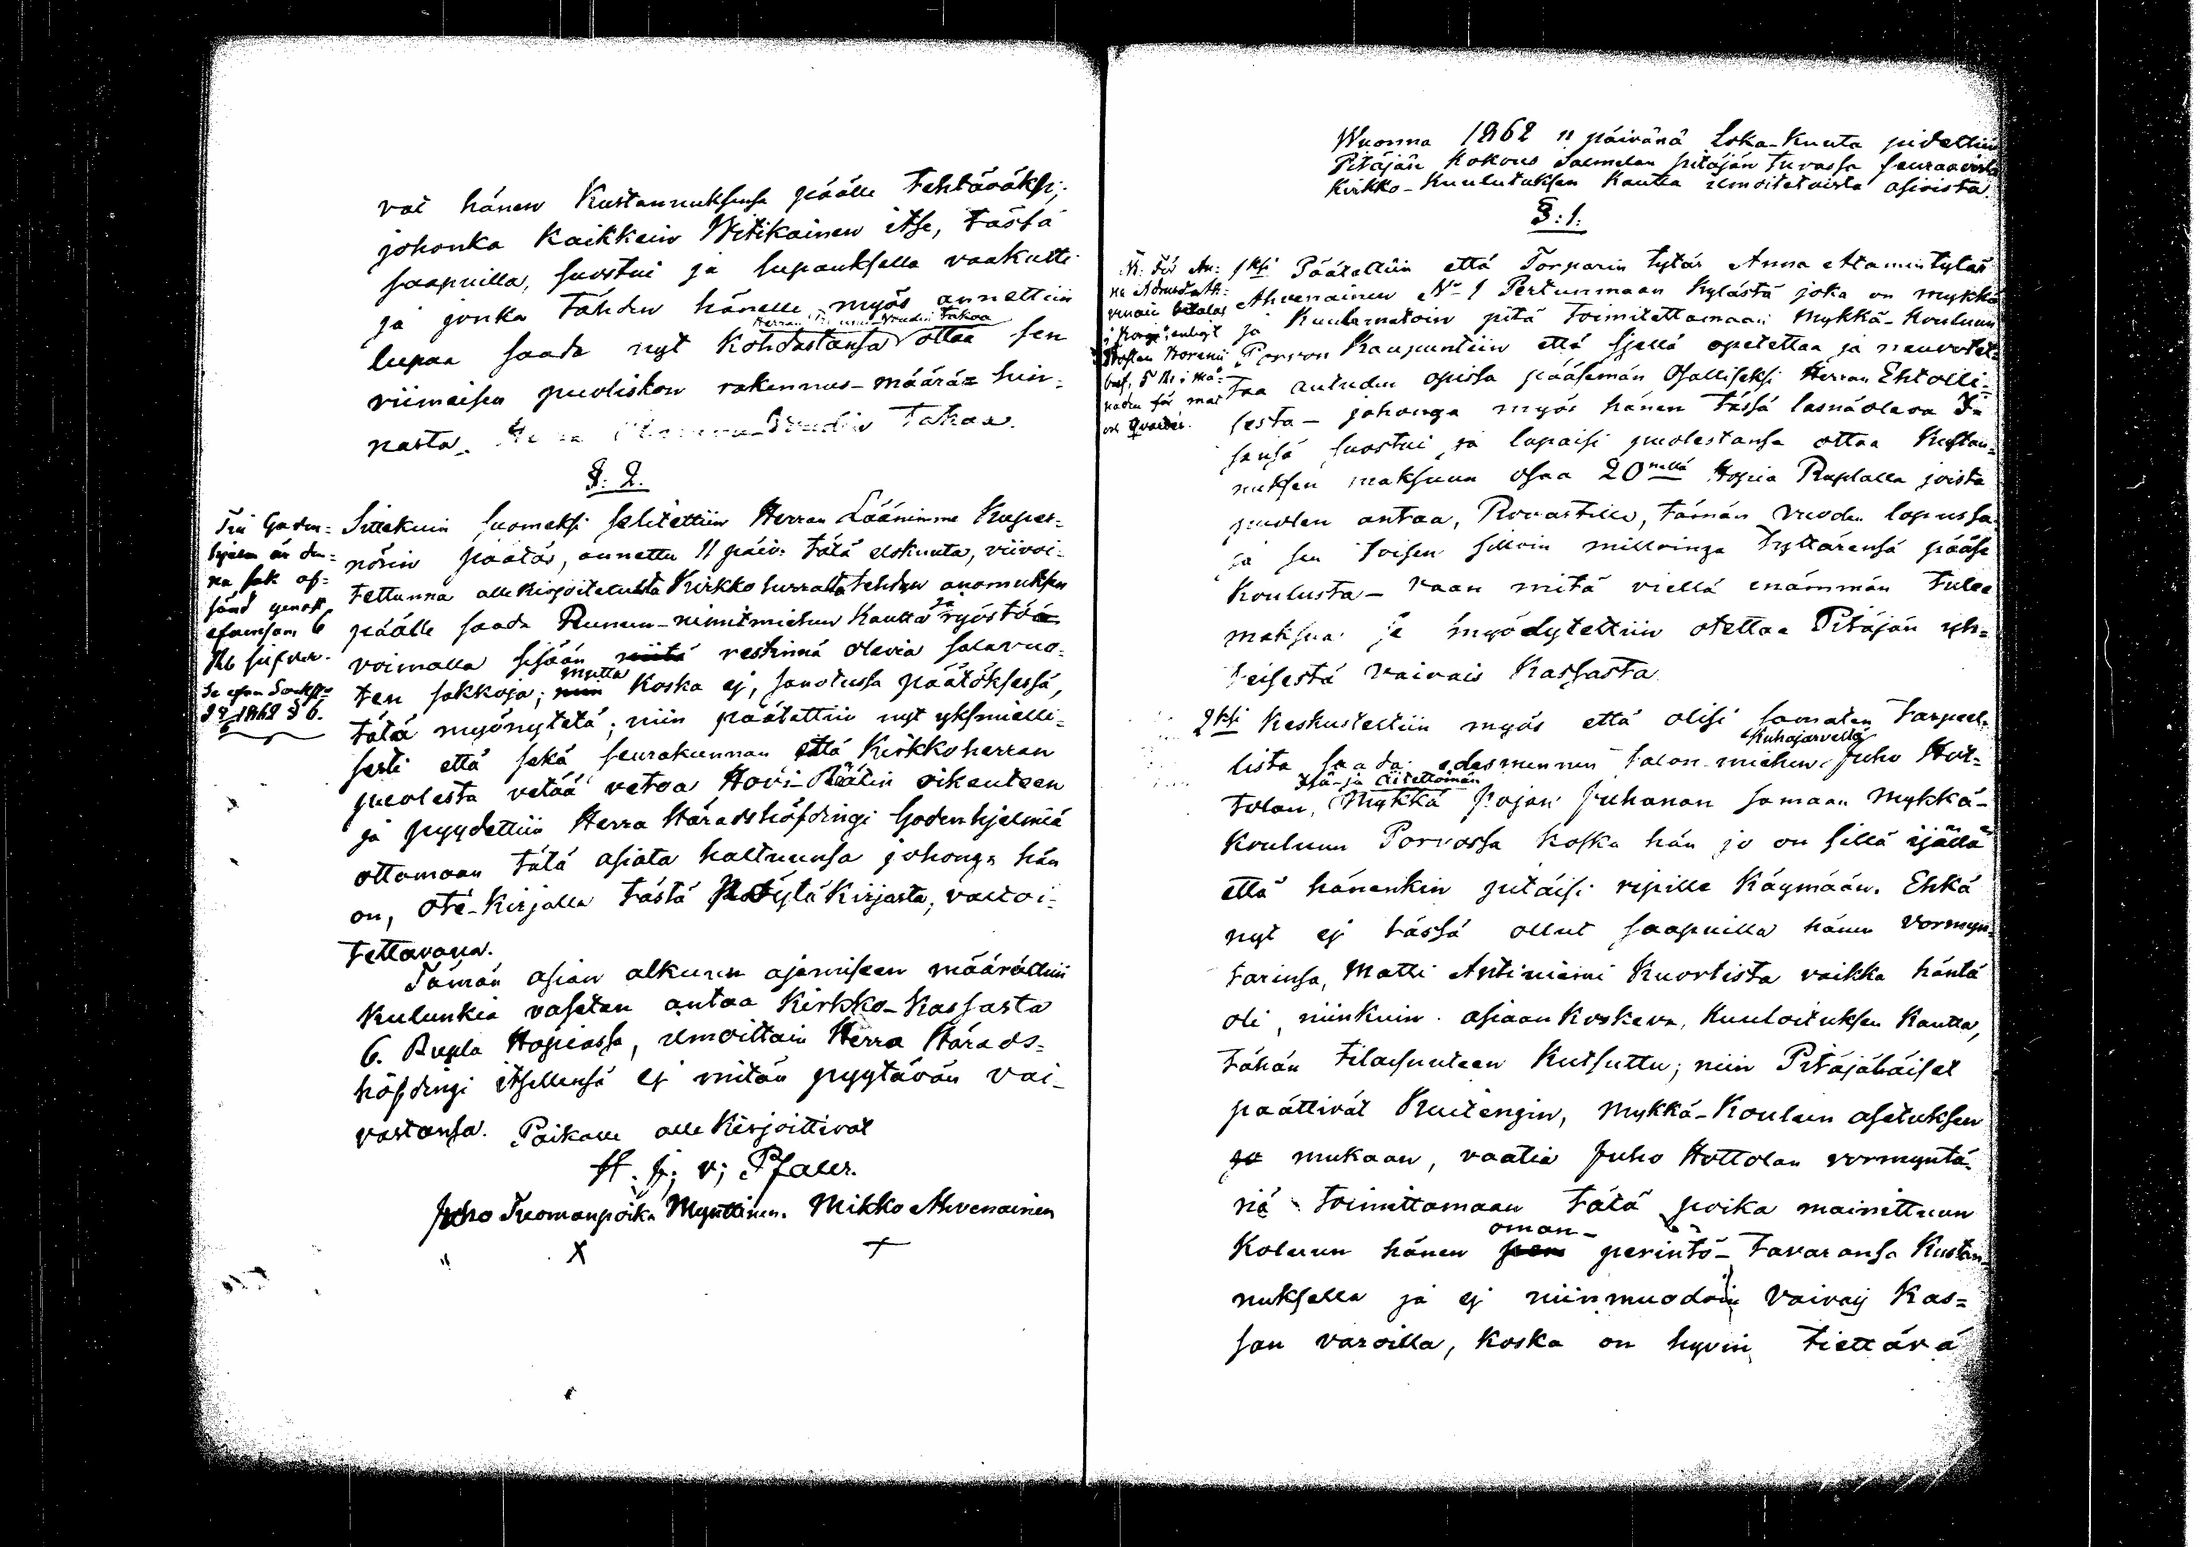 vat hänen Kustannuksensa päälle tehtäväksi;
johonka Kaikkein Witikainen itse, tässä
saapuilla, suostui ja lupauksella vaakutti
ja jonka tähden hänelle myös annettiin
Herran Voudin takaa
lupaa saada nyt Kohdastansa ottaa sen
viimeisen puoliskon rakennus-määrä hin-
nasta. Voudin takaa.
§. 2.
Sittekuin suomeksi selitettiin Herran Lääninme Kuper-
nörin päätös, annettu 11 päiv. tätä elokuuta, viivoi-
tettunna alle Kirjoitetulta Kirkkoherralta tehdyn anomuksen
päälle saada Ruunun-nimitmiehen Kautta ja ryöstö
voimalla sisään niitä restinnä olevia salavuo-
ten sakkoja; mutta koska ej, sanotussa päätöksessä,
tätä myönytetä; niin päätettiin nyt yksmieli-
sesti että sekä seurakunnan että Kirkkoherran
puolesta vetää vetoa Hovi-Räätin oikeuteen
ja pyydettiin Herra Häradshöfdingi Gadenhjelmiä
ottamaan tätä asiata haltuunsa johonga hän
on, ote-Kirjalla tästä Pöytä Kirjasta, valtoi-
tettavana.
Tämän asian alkuun ajamiseen määrättiin
Kulunkia vasten antaa Kirkko-Kassasta
6. Rupla Hopeassa, ilmoittain Herra Härads-
höfdingi itsellensä ej mitän pyytävän vai-
vastansa. Paikalle alle Kirjoittivat
H. j; v; Pfaler.
Juho Tuomanpoika Myntinen. Mikko Ahvenainen
X +
Till Gaden-
hjelm är den-
na sak af-
sänd genast
efvensom 6
Rb silfver.
Se efven Sockst
1862 § 6.
Wuonna 1862 11 päivänä Loka-Kuuta pidettiin
Pitäjän Kokous Salmelan pitäjän tuvassa seuraavista
Kirkko-Kuulutuksen Kautta ilmoitetuista asioista.
§: 1.
1ksi Päätettiin että Torparin tytär Anna Adamintytär
Ahvenainen No 1 Pertunmaan Kylästä joka on mykkä
ja Kuulematoin pitä toimitettamaan Mykkä-Kouluun
Porvoon Kaupuntiin että siellä opetettaa ja neuvotet-
taa autuden opissa pääsemän Osalliseksi Herran Ehtolli-
sesta - johonga myös hänen tässä läsnäoleva I-
sänsä suostui ja lupaisi puolestansa ottaa Kustan-
nuksen maksuun osaa 20nellä Hopia Ruplalla joista
puolen antaa, Rovastille, tämän vuoden lopussa
ja sen toisen silloin milloinga Tyttärensä pääse
Koulusta - vaan mitä viellä enämmän tulee
maksua ja myödytettiin otettaa Pitäjän yh-
teisestä vaivais Kassasta.
2ksi Keskusteltiin myös että olisi samaten tarpeel-
Kuhajärveltä
lista saada edesmennen talon-miehen Juho Hot-
Isä- ja äitettömän
tolan, Mykkä pojan Juhanan samaan Mykkä-
Kouluun Porvossa koska hän jo on sillä ijällä
että hänenkin pitäisi ripille Käymään. Ehkä
nyt ej tässä ollut saapuilla hänen vormyn-
tarinsa, Matti Antiniemi Kuortista vaikka häntä
oli, niinkuin asiaan Koskeva, Kuuloituksen Kautta,
tähän tilaisuuteen Kutsuttu; niin Pitäjäläiset
päättivät Kuitengin, Mykkä-Koulun asetuksen
jo mukaan, vaatia Juho Hottolan vormyntä-
riä toimittamaan tätä poika mainittuun
oman-
Koluun hänen perintö-tavaransa Kustan-
nuksella ja ej niinmuodoin vaivaij Kas-
san varoilla, koska on hyvin tiettävä
N. för An-
na Adamsd. Ah-
venain betalas